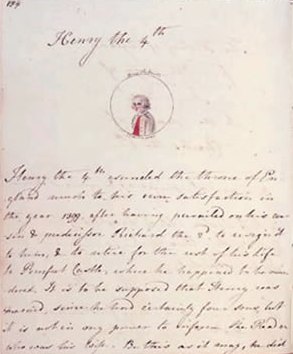 Henry the 4th
Henry the 4th ascended the throne of En-
gland much to his own satisfaction in
the year 1399, after having prevailed on his cou-
sin & predecessor Richard the 2d to resign it
to him, & to retire for the rest of his life
to Pomfret Castle, where he happened to be mur-
dered. It is to be supposed that Henry was
married, since he had certainly four sons, but
it is not in my power to inform the Reader
who was his Wife. Be this as it may, he did